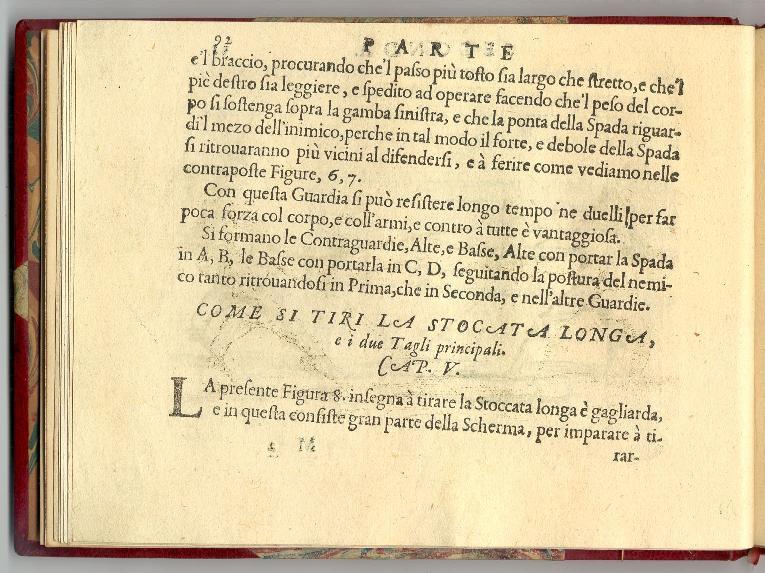 92
PARTE
e'l braccio, procurando che'l passo più tosto sia largo che stretto, e che'l
piè destro sia leggiere, e spedito ad operare facendo che'l peso del cor-
po si sostenga sopra la gamba sinistra, e che la ponta della Spada riguar-
di'l mezo dell'inimico, perche in tal modo il forte, e debole della Spada
si ritrouaranno più vicini al difendersi, e à ferire come vediamo nelle
contraposte Figure, 6, 7.
Con questa Guardia si può resistere longo tempo ne duelli per far
poca forza col corpo, e coll'armi, e contro à tutte è vantaggiosa.
Si formano le Contraguardie, Alte, e Basse, Alte con portar la Spada
in A, B, le Basse con portarla in C, D, seguitando la postura del nemi-
co tanto ritrouandosi in Prima, che in Seconda, e nell'altre Guardie.
COME SI TIRI LA STOCATA LONGA,
e i due Tagli principali.
CAP. V.
LA presente Figura 8. insegna à tirare la Stoccata longa è gagliarda,
e in questa consiste gran parte della Scherma, per imparare à ti-
rar-